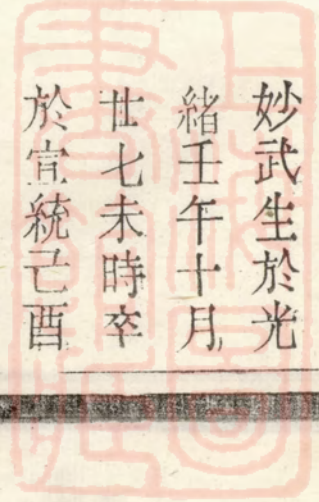 妙武生於光
緒壬午十月
廿七未時卒
於宣統己酉